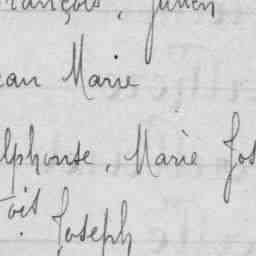 François, Julien
ean Marie
lphonse, Marie Jos
oit Joseph